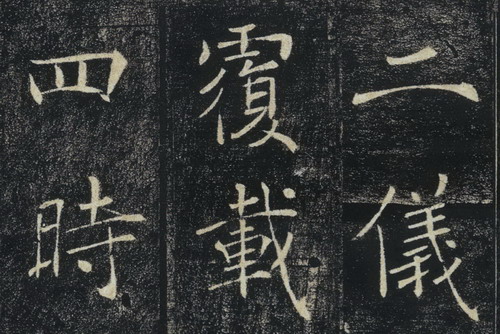 二儀
覆載
四時